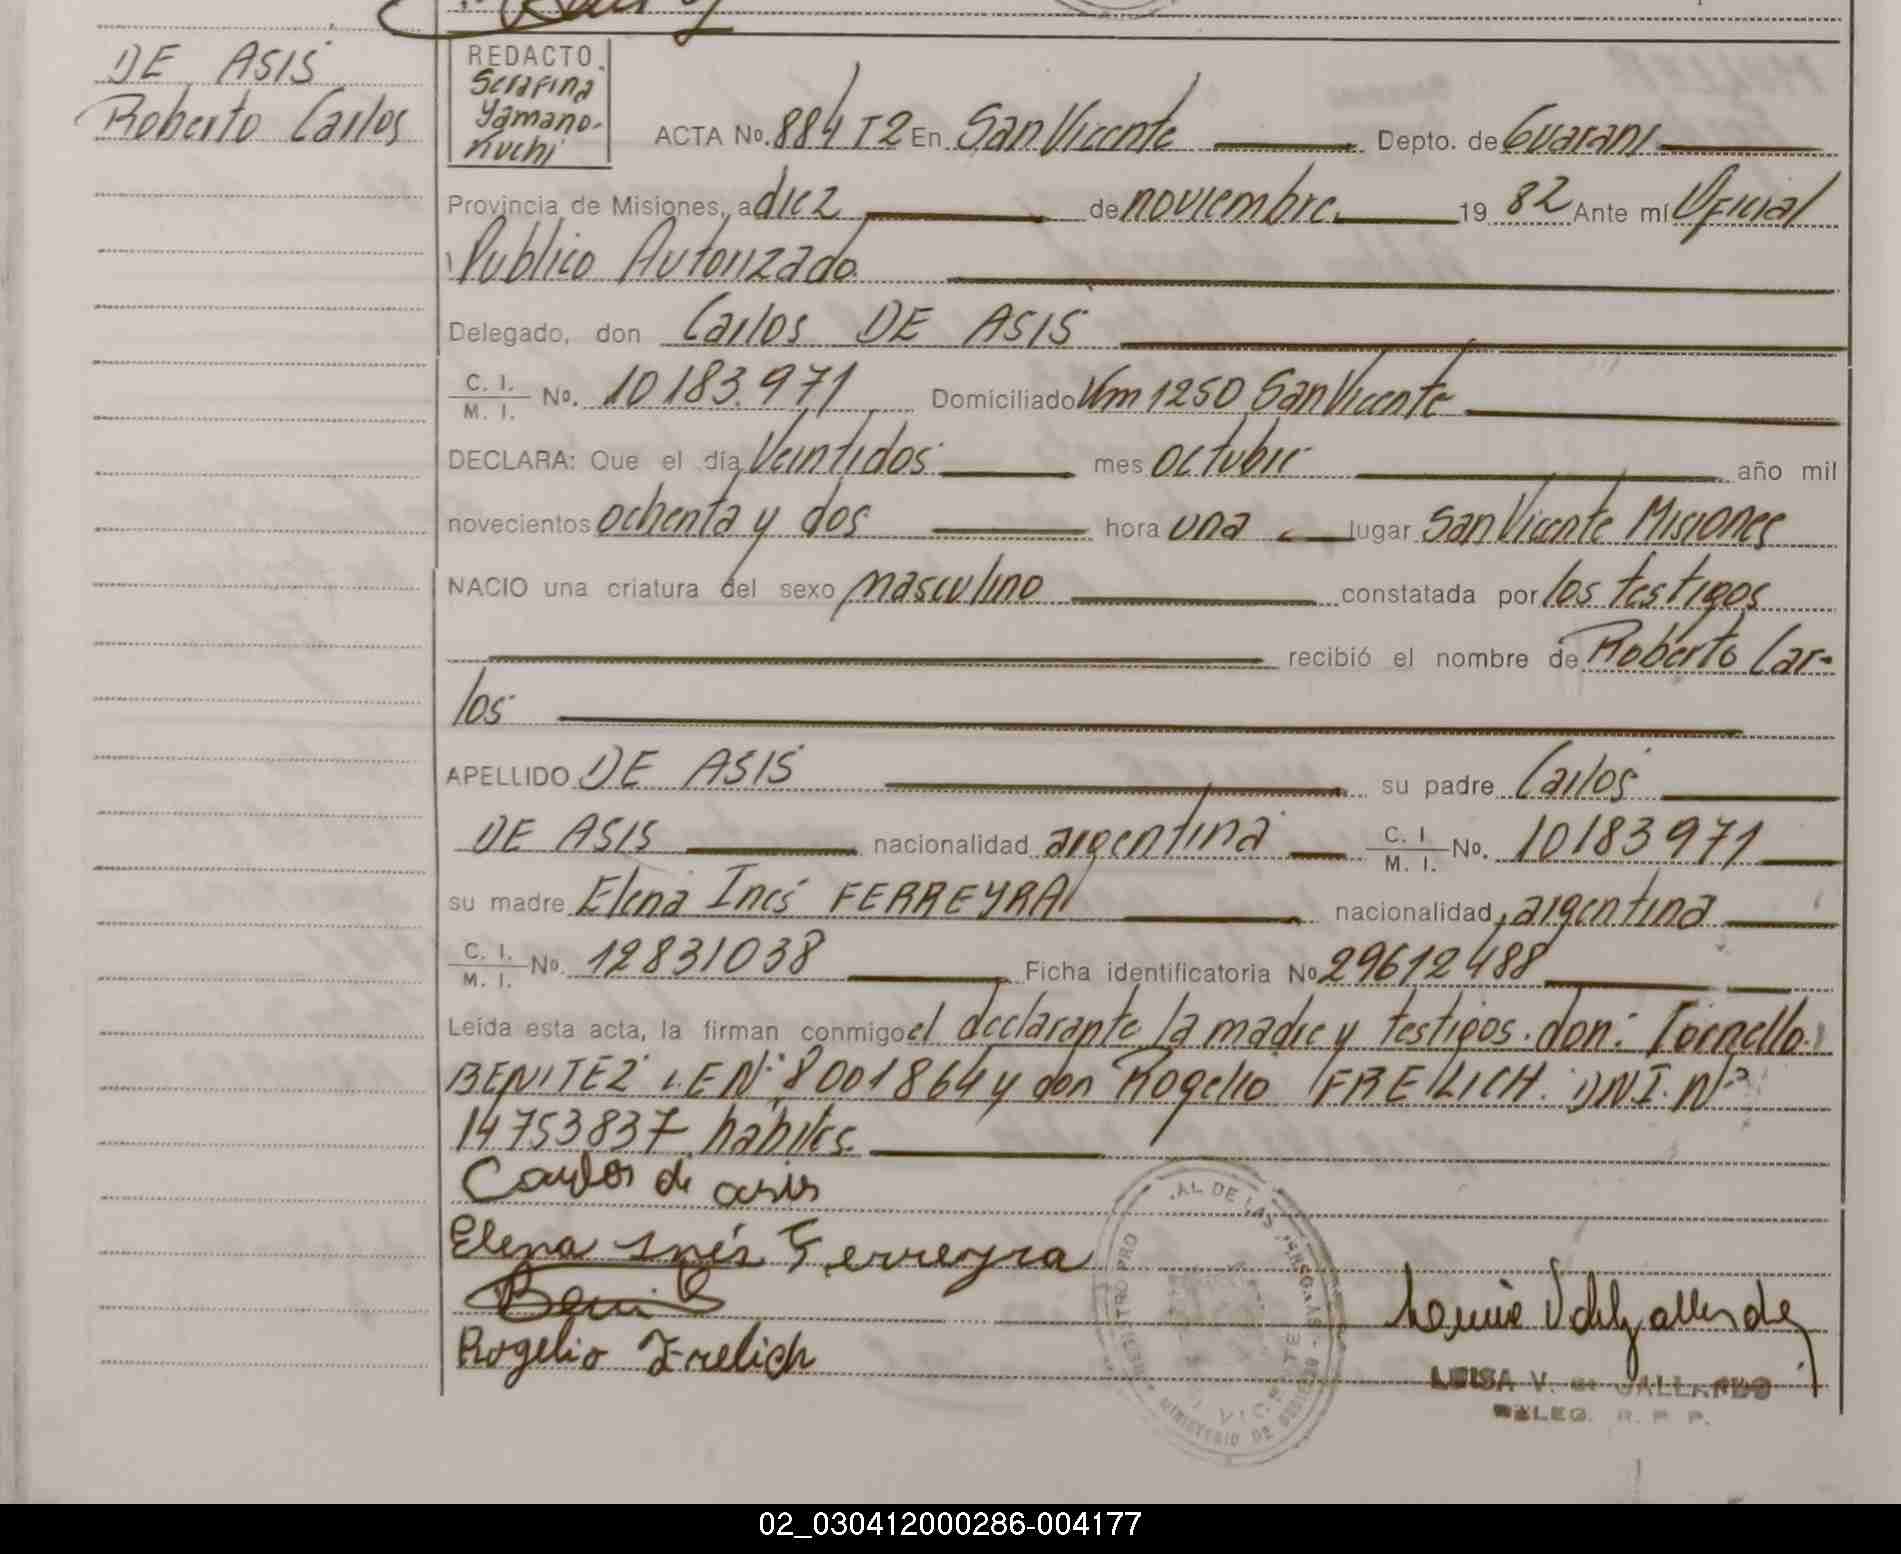 DE ASIS
Roberto Carlos
REDACTO.
Serafina
Yamano-
Kuchi
ACTA No. 884 T2 En San Vicente Depto. de Guarani
Provincia de Misiones, a diez de noviembre 19 82 Ante mí Oficial
Publico Autorizado
Delegado, don Carlos DE ASIS
C. I. / M. I. No. 10183.971 Domiciliado Km 1250 San Vicente
DECLARA: Que el día Veintidos mes octubre año mil
novecientos ochenta y dos hora una lugar San Vicente Misiones
NACIO una criatura del sexo masculino constatada por los testigos
recibió el nombre de Roberto Car-
los
APELLIDO DE ASIS su padre Carlos
DE ASIS nacionalidad argentina C. I. / M. I. No. 10183971
su madre Elena Inés FERREYRA nacionalidad argentina
C. I. / M. I. No. 12831038 Ficha identificatoria No 29612488
Leída esta acta, la firman conmigo el declarante la madre y testigos. don:
BENITEZ L.E Nº 8001864 y don Rogelio FRELICH. DNI. Nº
14753837 habiles.
Carlos de asis
Elena Inés Ferreyra
Rogelio Frelich
AL DE LAS PERSONAS
MINISTERIO DE GOBIERNO
LUISA V. de GALLARDO
DELEG. R. P. P.
02_030412000286-004177